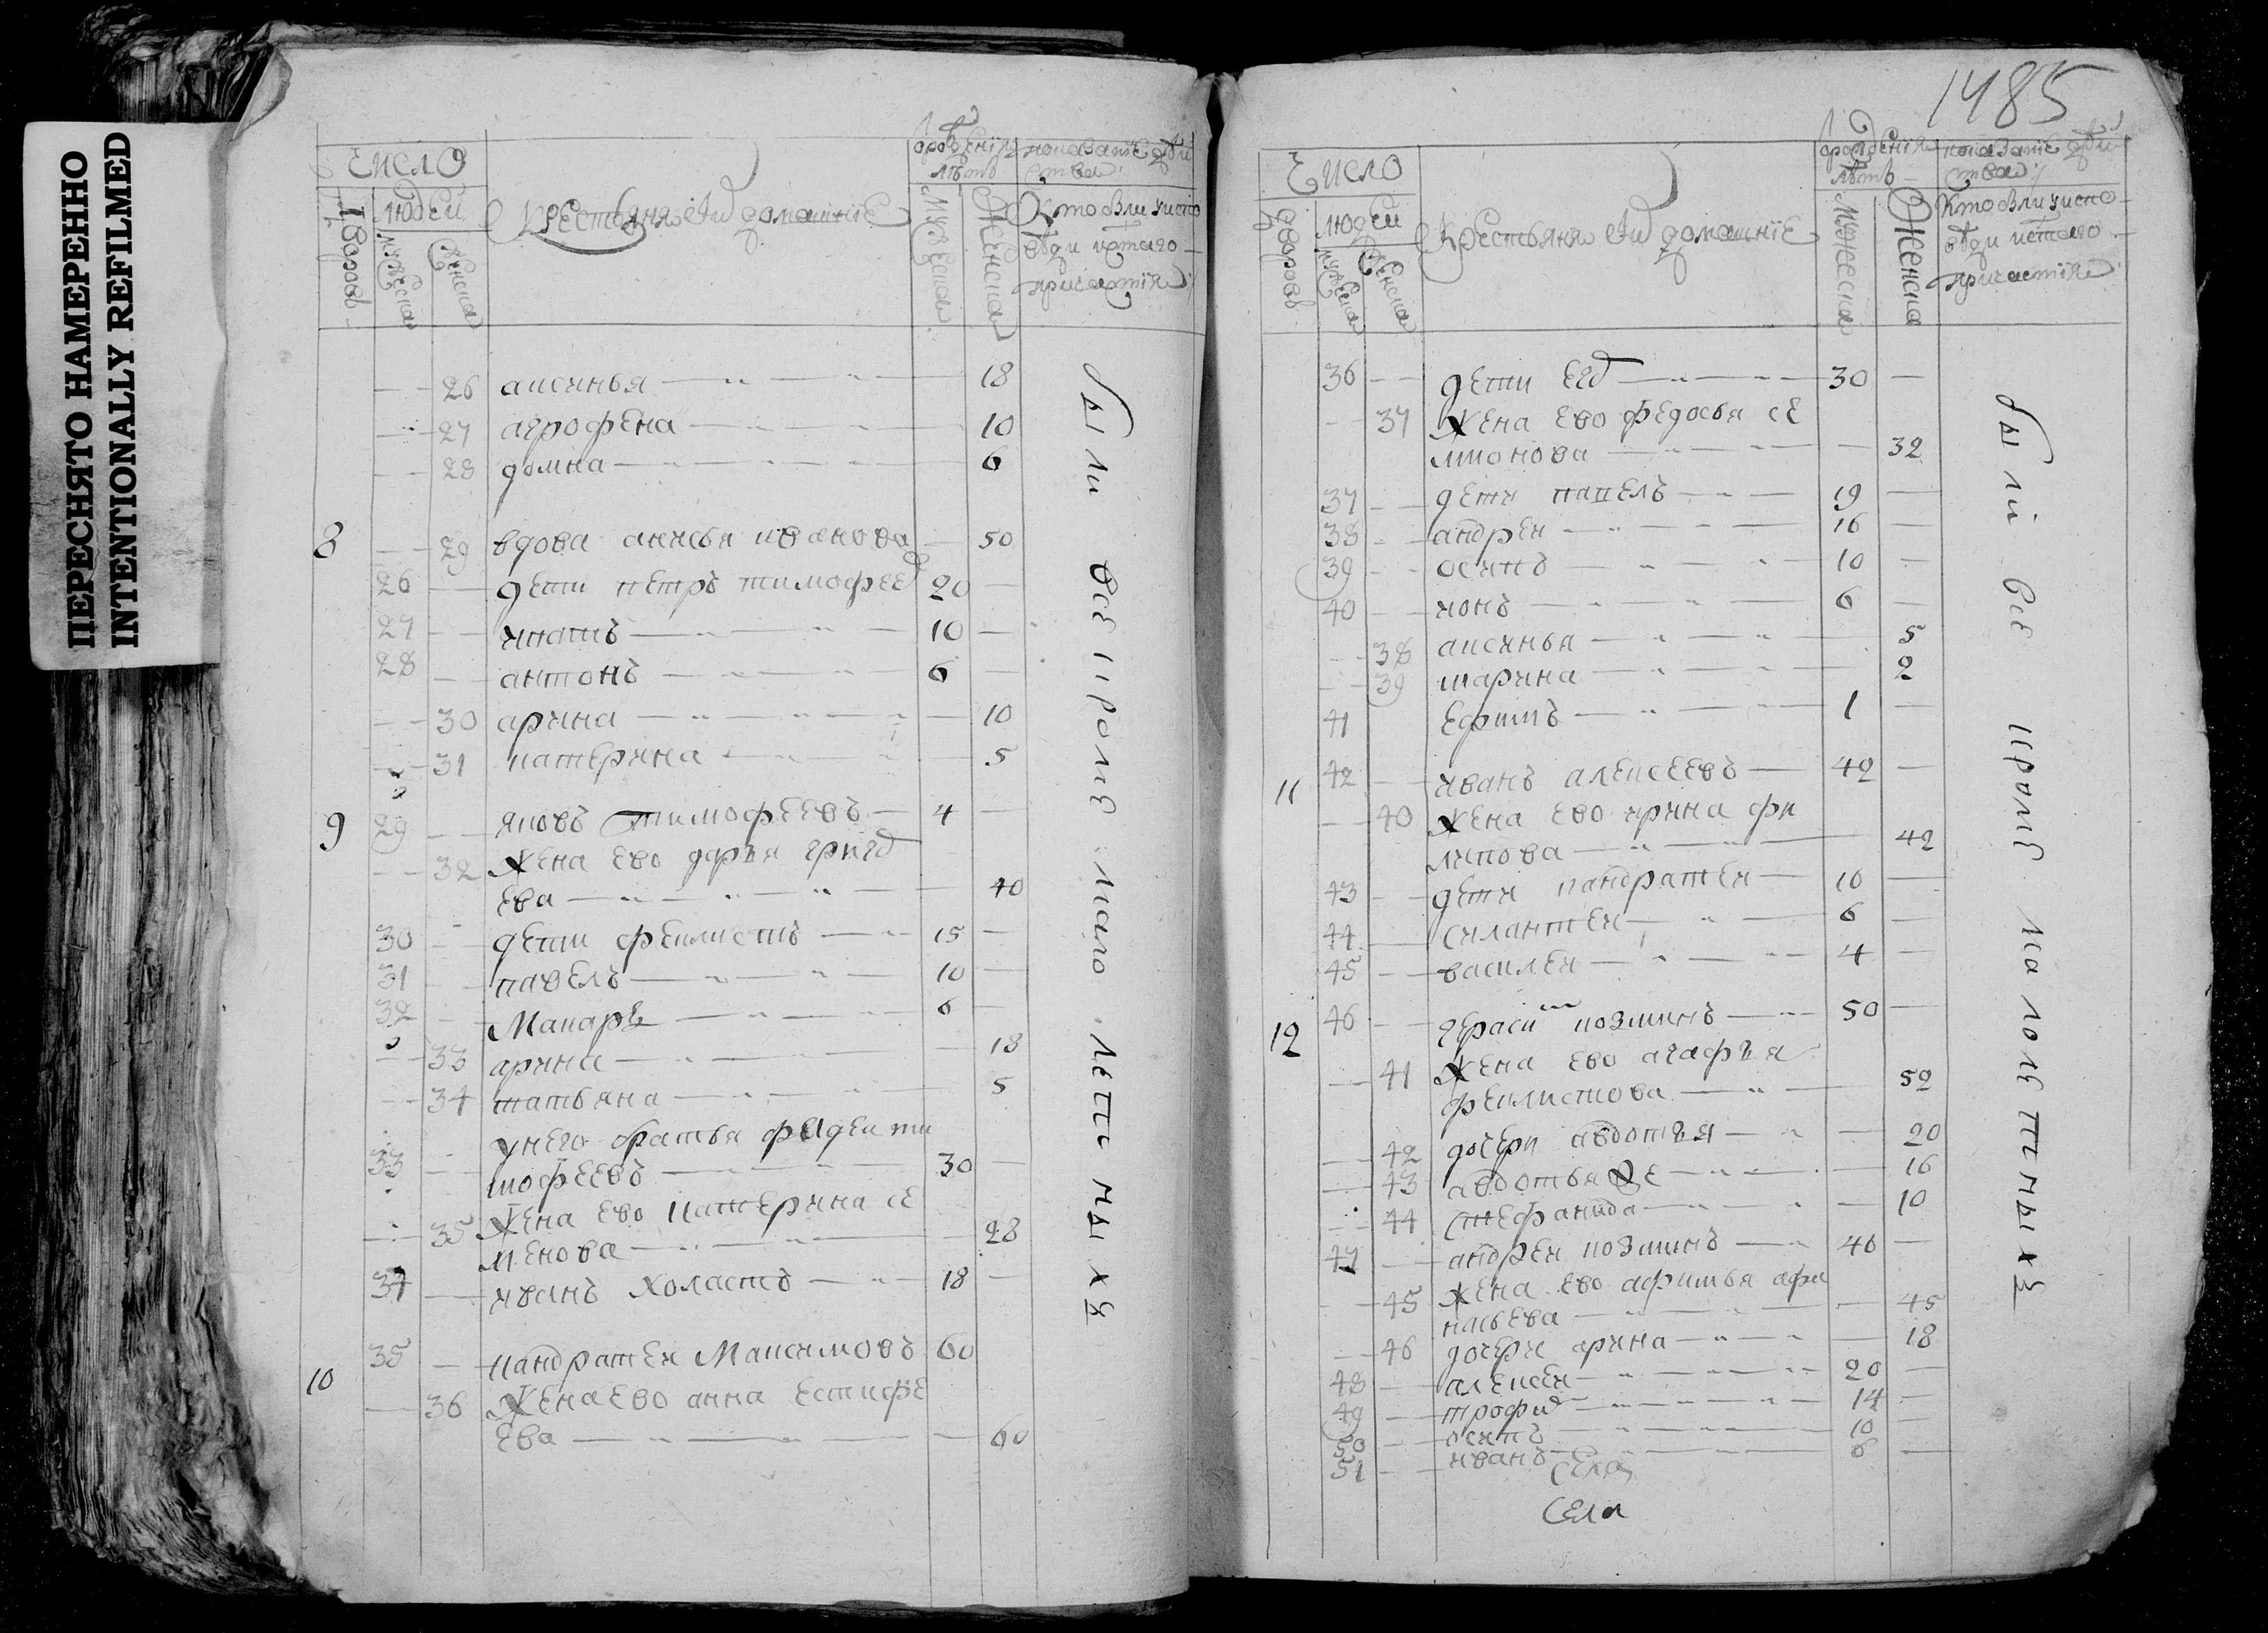 ПЕРЕСНЯТО НАМЕРЕННО
INTENTIONALLY REFILMED
Число
Дворовъ
людей
мужеска
женска
крестьяня и их домашние
лѣтъ
мужеска
женска
показание действа
кто были у исповѣди и святаго причастия
26 аксинья 18
27 агрофена 10
28 домна 6
8 29 вдова анисья иванова 50
26 дети петръ тимофее 20
27 игнатъ 10
28 антонъ 6
30 арина 10
31 катерина 5
9 29 яковъ тимофеевъ 4
32 жена ево дарья григо
ева 40
30 дети феклистъ 15
31 павелъ 10
32 Макаръ 6
33 арина 18
34 татьяна 5
у него братья фадеи ти
33 мофеевъ 30
35 жена ево катерина се
менова 28
34 иванъ холастъ 18
10 35 кандратеи Максимовъ 60
36 жена ево анна естифе
ева 60
были все кроме мало летныхъ
1485
Число
дворовъ
людей
мужеска
женска
крестьяня и их домашнiе
лѣтъ
мужеска
женска
показанiе действа
кто были у исповѣди и святаго причастiя
36 дети его 30
37 жена ево федосья се
мионова 32
37 дети павелъ 19
38 андреи 16
39 осипъ 10
40 ионъ 6
38 аксинья 5
39 марина 2
41 ефимъ 1
11 42 иванъ алексеевъ 42
40 жена ево ирина фи
липова 42
43 дети кандратеи 10
44 силантеи 6
45 василеи 4
12 46 герасимъ козминъ 50
41 жена ево агафья
феклистова 52
42 дочери авдотья 20
43 авдотья же 16
44 стефанида 10
47 андреи козминъ 40
45 жена ево афимья афа
насьева 45
46 дочери арина 18
48 алексеи 20
49 трофим 14
50 осипъ 10
51 иванъ 6
Села
Села
были все кроме малолетныхъ